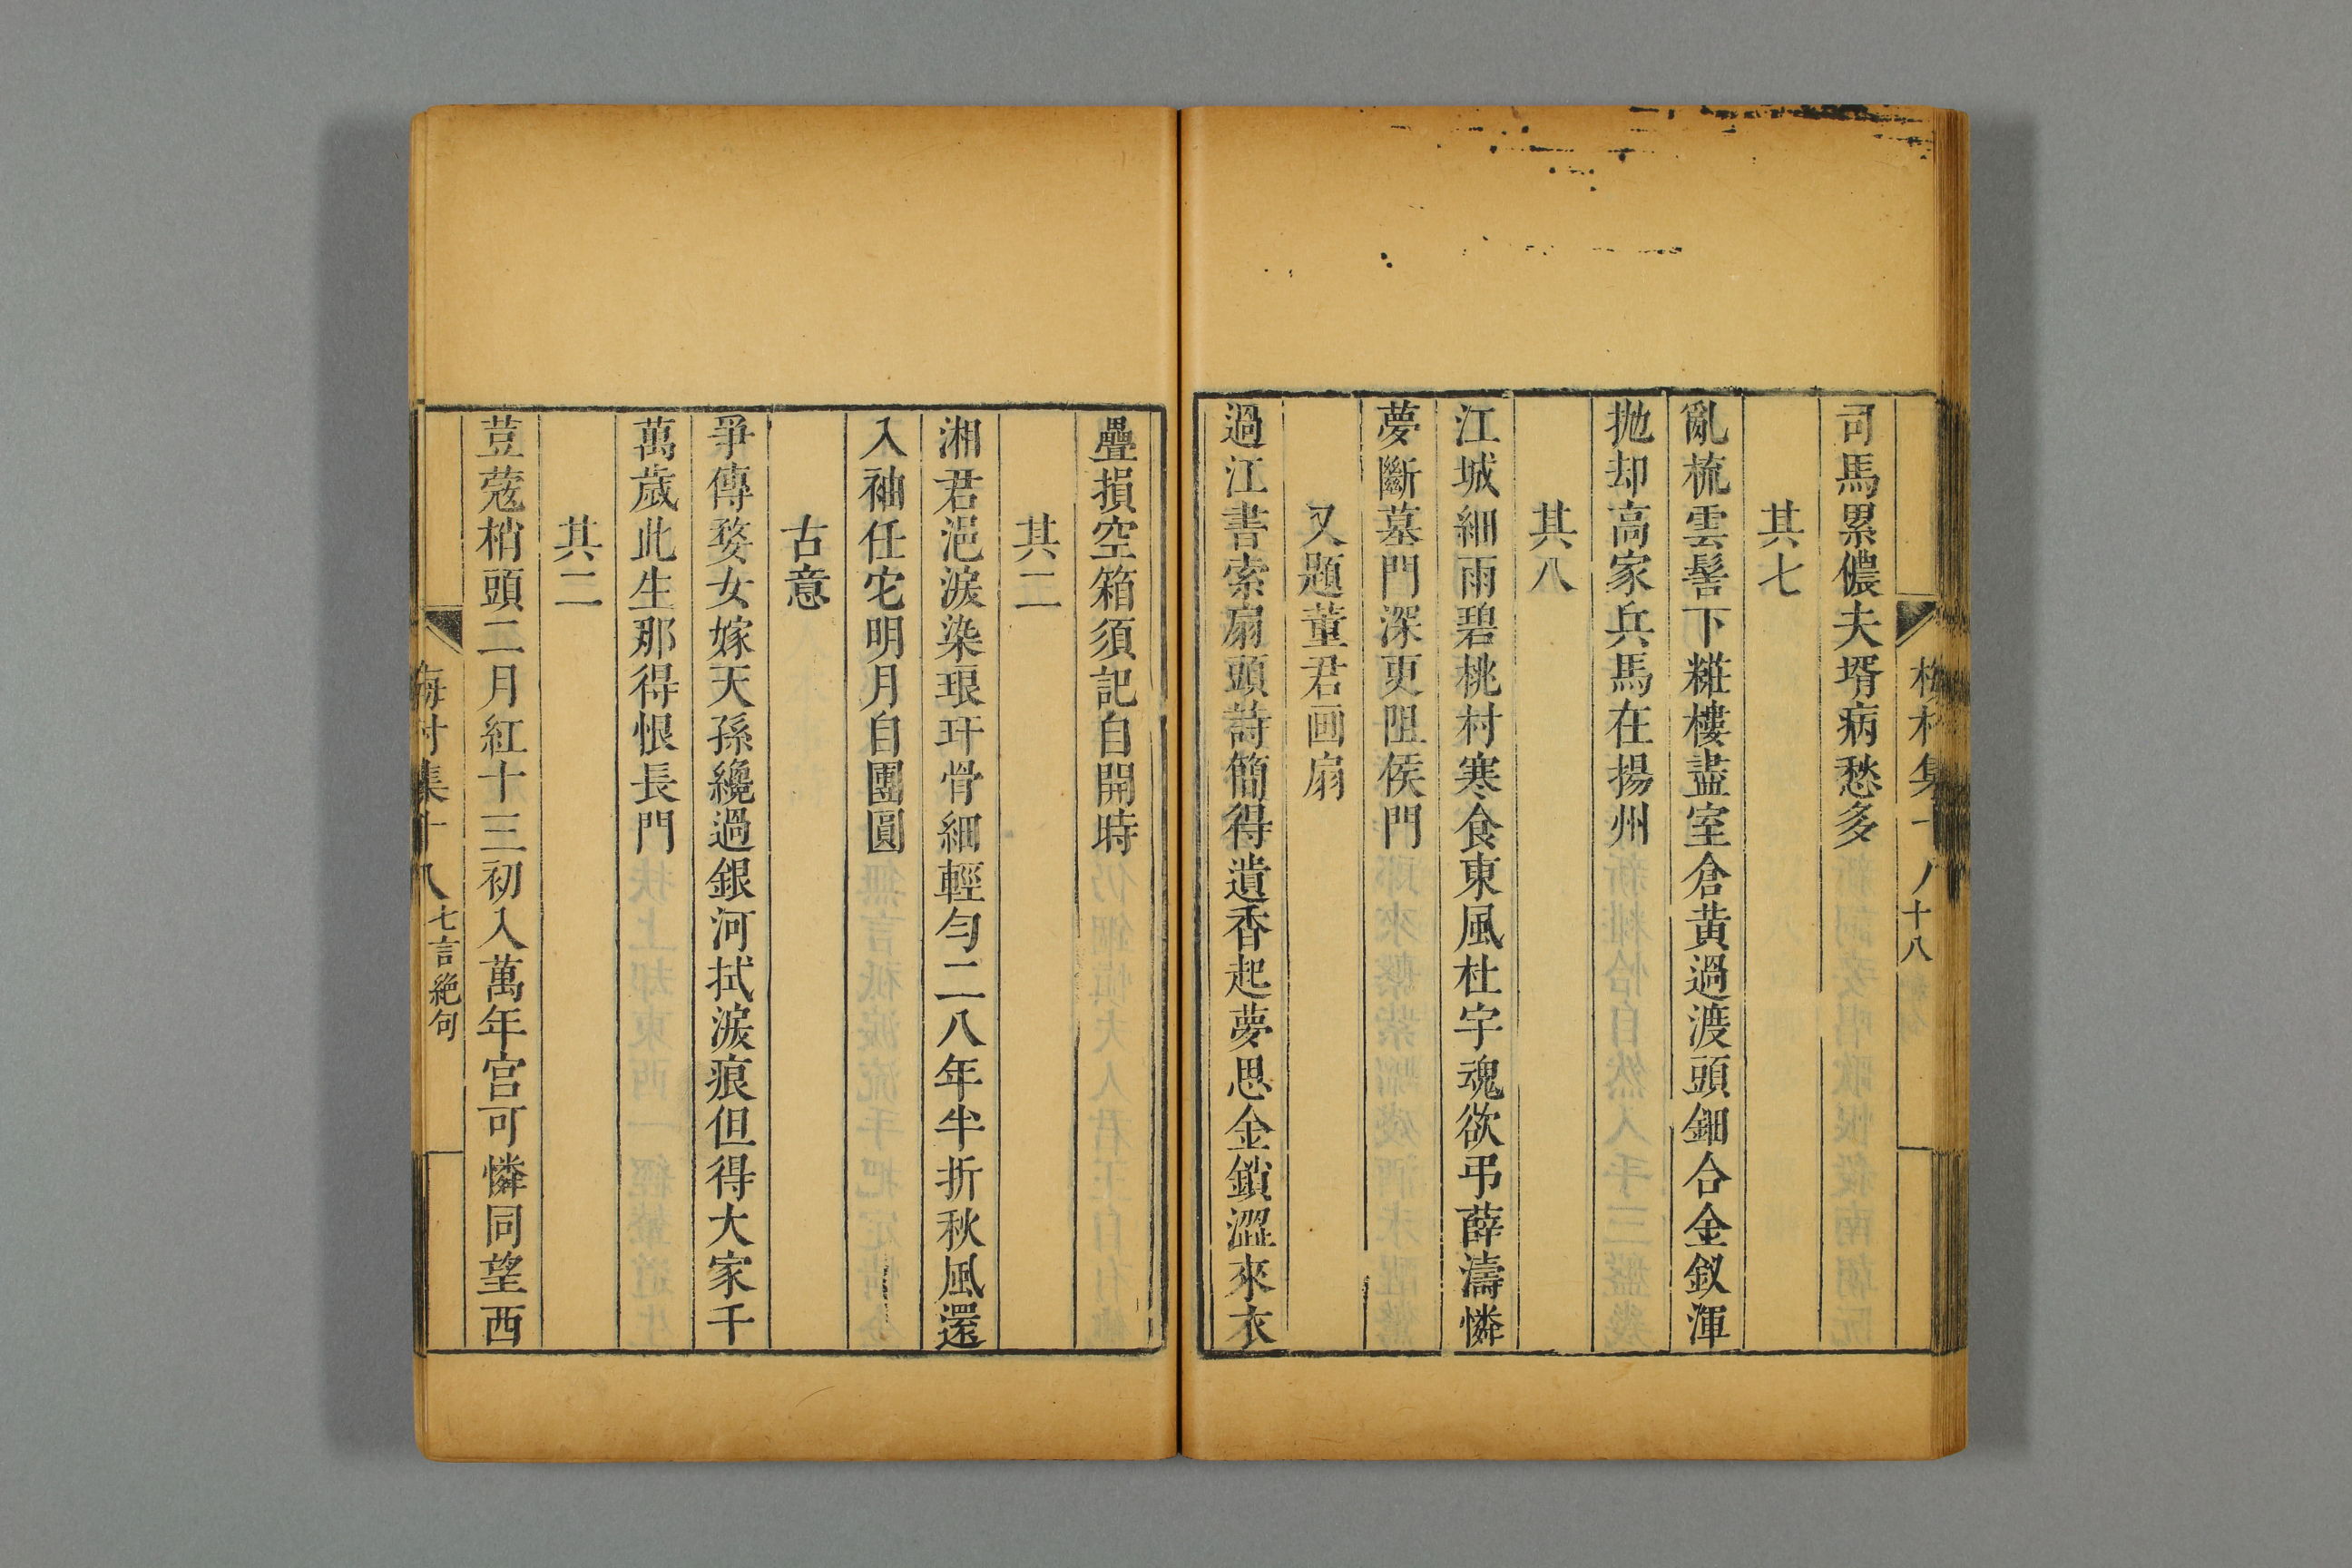 梅村集 十八
司馬累儂夫壻病愁多
其七
亂梳雲髻下糚樓盡室倉黃過渡頭鈿合金釵渾
抛却高家兵馬在揚州
其八
江城細雨碧桃村寒食東風杜宇魂欲弔薛濤憐
夢斷墓門深更阻侯門
又題董君画扇
過江書索扇頭詩簡得遺香起夢思金鎖澀來衣
疊損空箱須記自開時
其二
湘君浥淚染琅玕骨細輕勻二八年半折秋風還
入袖任宅明月自團圓
古意
爭傳婺女嫁天孫纔過銀河拭淚痕但得大家千
萬歲此生那得恨長門
其二
荳蔻梢頭二月紅十三初入萬年宮可憐同望西
梅村集十八 七言絕句